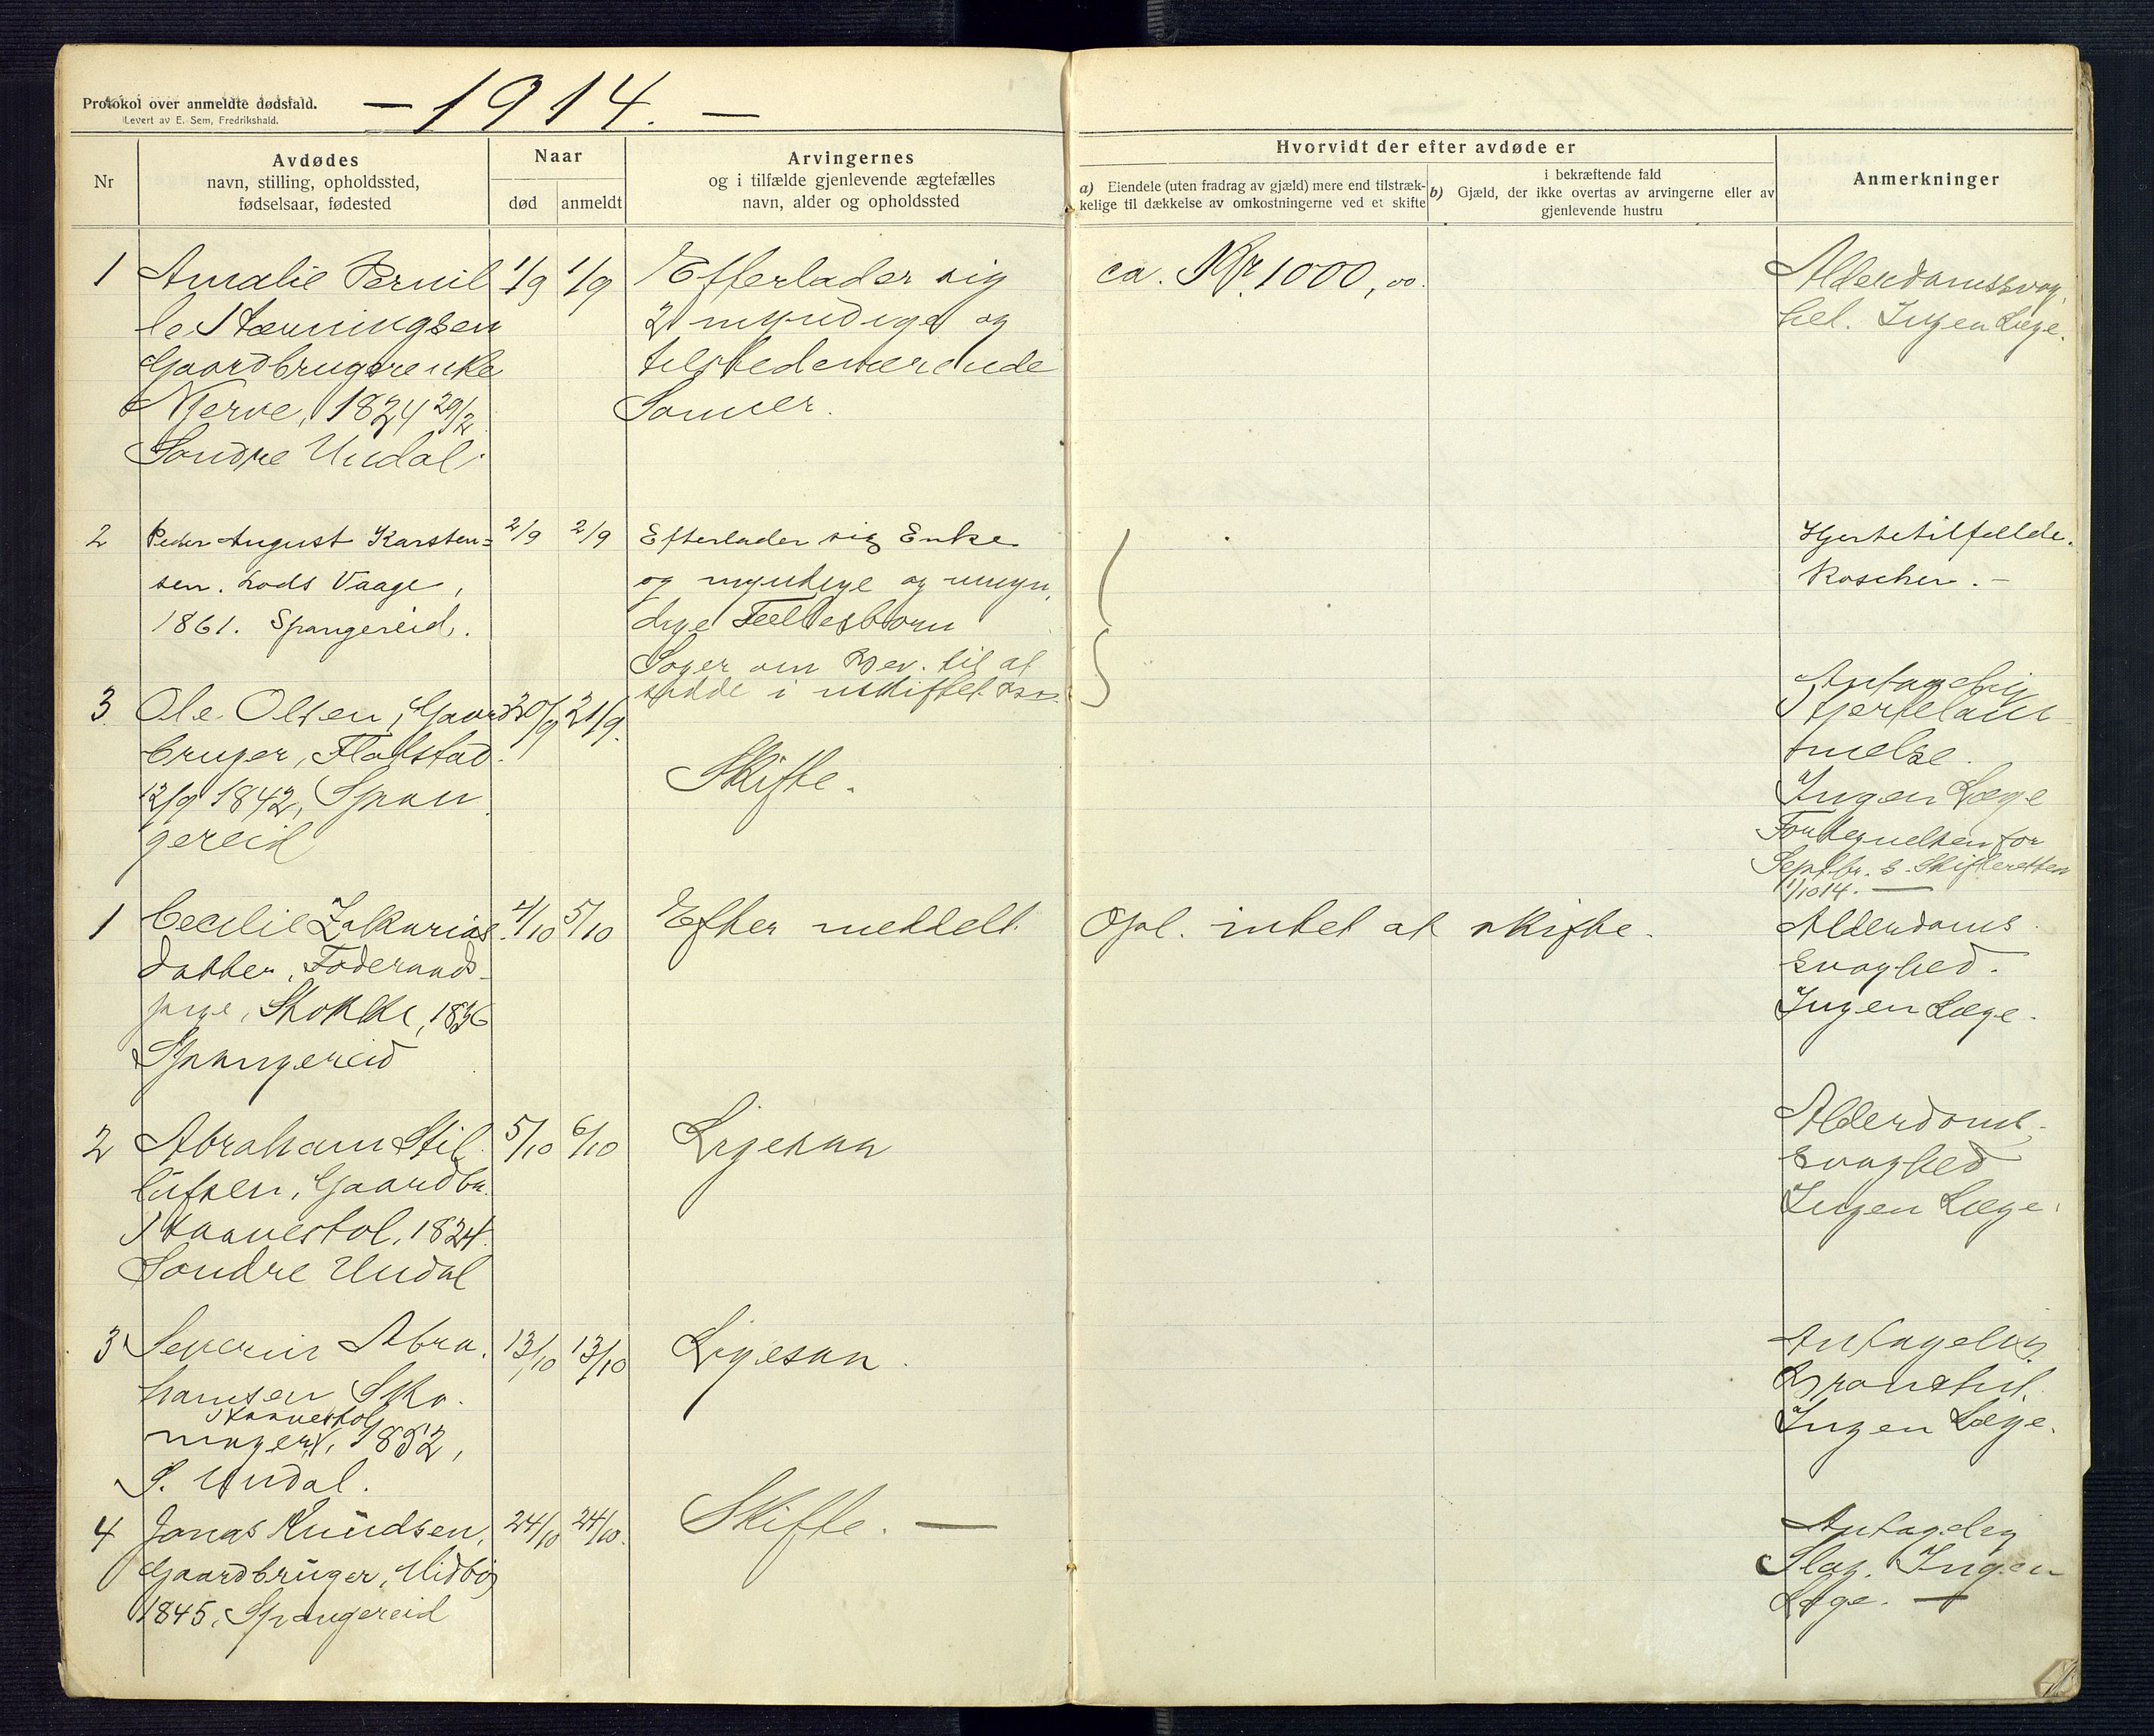 Protokol over anmeldte dødsfald.
Levert av E. Sem, Fredrikshald.
— 1914. —
Nr
Avdødes
navn, stilling, opholdssted,
fødselsaar, fødested
Naar
død
anmeldt
Arvingernes
og i tilfælde gjenlevende ægtefælles
navn, alder og opholdssted
Hvorvidt der efter avdøde er
a) Eiendele (uten fradrag av gjæld) mere end tilstræk-
kelige til dækkelse av omkostningerne ved et skifte
i bekræftende fald
b) Gjæld, der ikke overtas av arvingerne eller av
gjenlevende hustru
Anmerkninger
1
Amalie Pernil
le Hærningsen
Gaardbrugerenke
Njerve, 1824 29/2
Søndre Undal
1/9
1/9
Efterlader sig
2 myndige og
tilstedeværende
Sønner.
ca. Kr. 1000,00.
Alderdomssvag
hed. Ingen Læge.
2
Peder August Karsten=
sen. Lods Vaage,
1861. Spangereid.
2/9
2/9
Efterlader sig Enke
og myndige og umyn,
dige Fællesbørn
Søger om Bev. til at
sidde i uskiftet Bo.
Hjertetilfælde.
Roscher. –
3
Ole Olsen, Gaard
bruger, Flatstad.
12/9 1842, Span
gereid
20/9
21/9.
Skifte.
Antagelig
Hjertelam
melse.
Ingen Læge
Fortegnelsen for
Septbr. s. Skifteretten
1/10 14. —
1
Cecilie Zakarias
datter, Føderaads
pige, Stokke, 1836
Spangereid
4/10
5/10
Efter meddelt
Opl. intet at skifte.
Alderdoms
svaghed.
Ingen Læge.
2
Abraham Stil
lufsen, Gaardbr.
Haavestøl, 1824.
Søndre Undal
5/10
6/10
Ligesaa
Alderdoms
svaghed
Ingen Læge.
3
Severin Abra.
hamsen Sko.
Haavestøl
mager, 1852,
S. Undal.
13/10
13/10
Ligesaa.
Antagelig
Bronchit.
Ingen Læge.
4
Jonas Knudsen,
Gaardbruger, Midbø
1845, Spangereid
24/10
24/10.
Skifte. —
Antagelig
Slag. Ingen
Læge. —